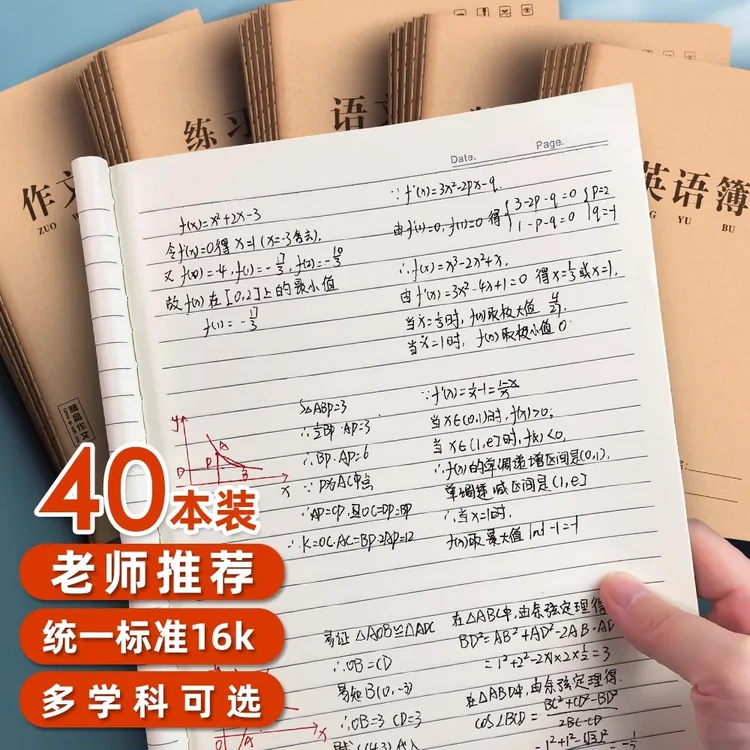 作文
ZUO
练习
语文
英语簿
YU
BU
Date.
Page.
f(x)=x²+2x-3
令f'(x)=0得 x=1 (x=-3舍去).
又 f(0)=-4, f(1)=-17/3, f(2)=-10/3
故 f(x) 在 [0,2] 上的最小值
f(1)=-17/3
∵ f'(x)=3x²-2px-q
由f'(1)=0, f(1)=0 得 {3-2p-q=0 {p=2
1-p-q=0 q=-1
∴ f(x)=x³-2x²+x.
由f'(x)=3x²-4x+1=0 得 x=1/3 或 x=1,
当x=1/3时, f(x)取极大值 4/27.
当x=1时, f(x)取极小值 0
y
A
P
D
B
x
S△ABP=3
∴ ½BP·AP=3
∴ BP·AP=6
∵ P为AC中点
∴AP=CP,且OC=DP=BP
∴ K=OC·AC=BP·2AP=12
∵ f'(x)=1/x-1=1-x/x
当x∈(0,1)时, f'(x)>0;
当x∈(1,e]时, f'(x)<0.
∴ f(x)的单调递增区间是(0,1),
单调递减区间是(1,e]
∴ 当x=1时.
f(x)取最大值 ln1-1=-1
易证 △AOB≌△ADC
∴OB=CD
易知B(0,-3)
∴OB=3 CD=3
在△ABC中,由余弦定理得
BD²=AB²+AD²-2AB·AD
=1²+2²-2×1×2×½=3
在△ABD中,由余弦定理得.
cos∠BCD=BC²+CD²-BD²/2BC·CD
精品作文
40本装
老师推荐
统一标准16k
多学科可选